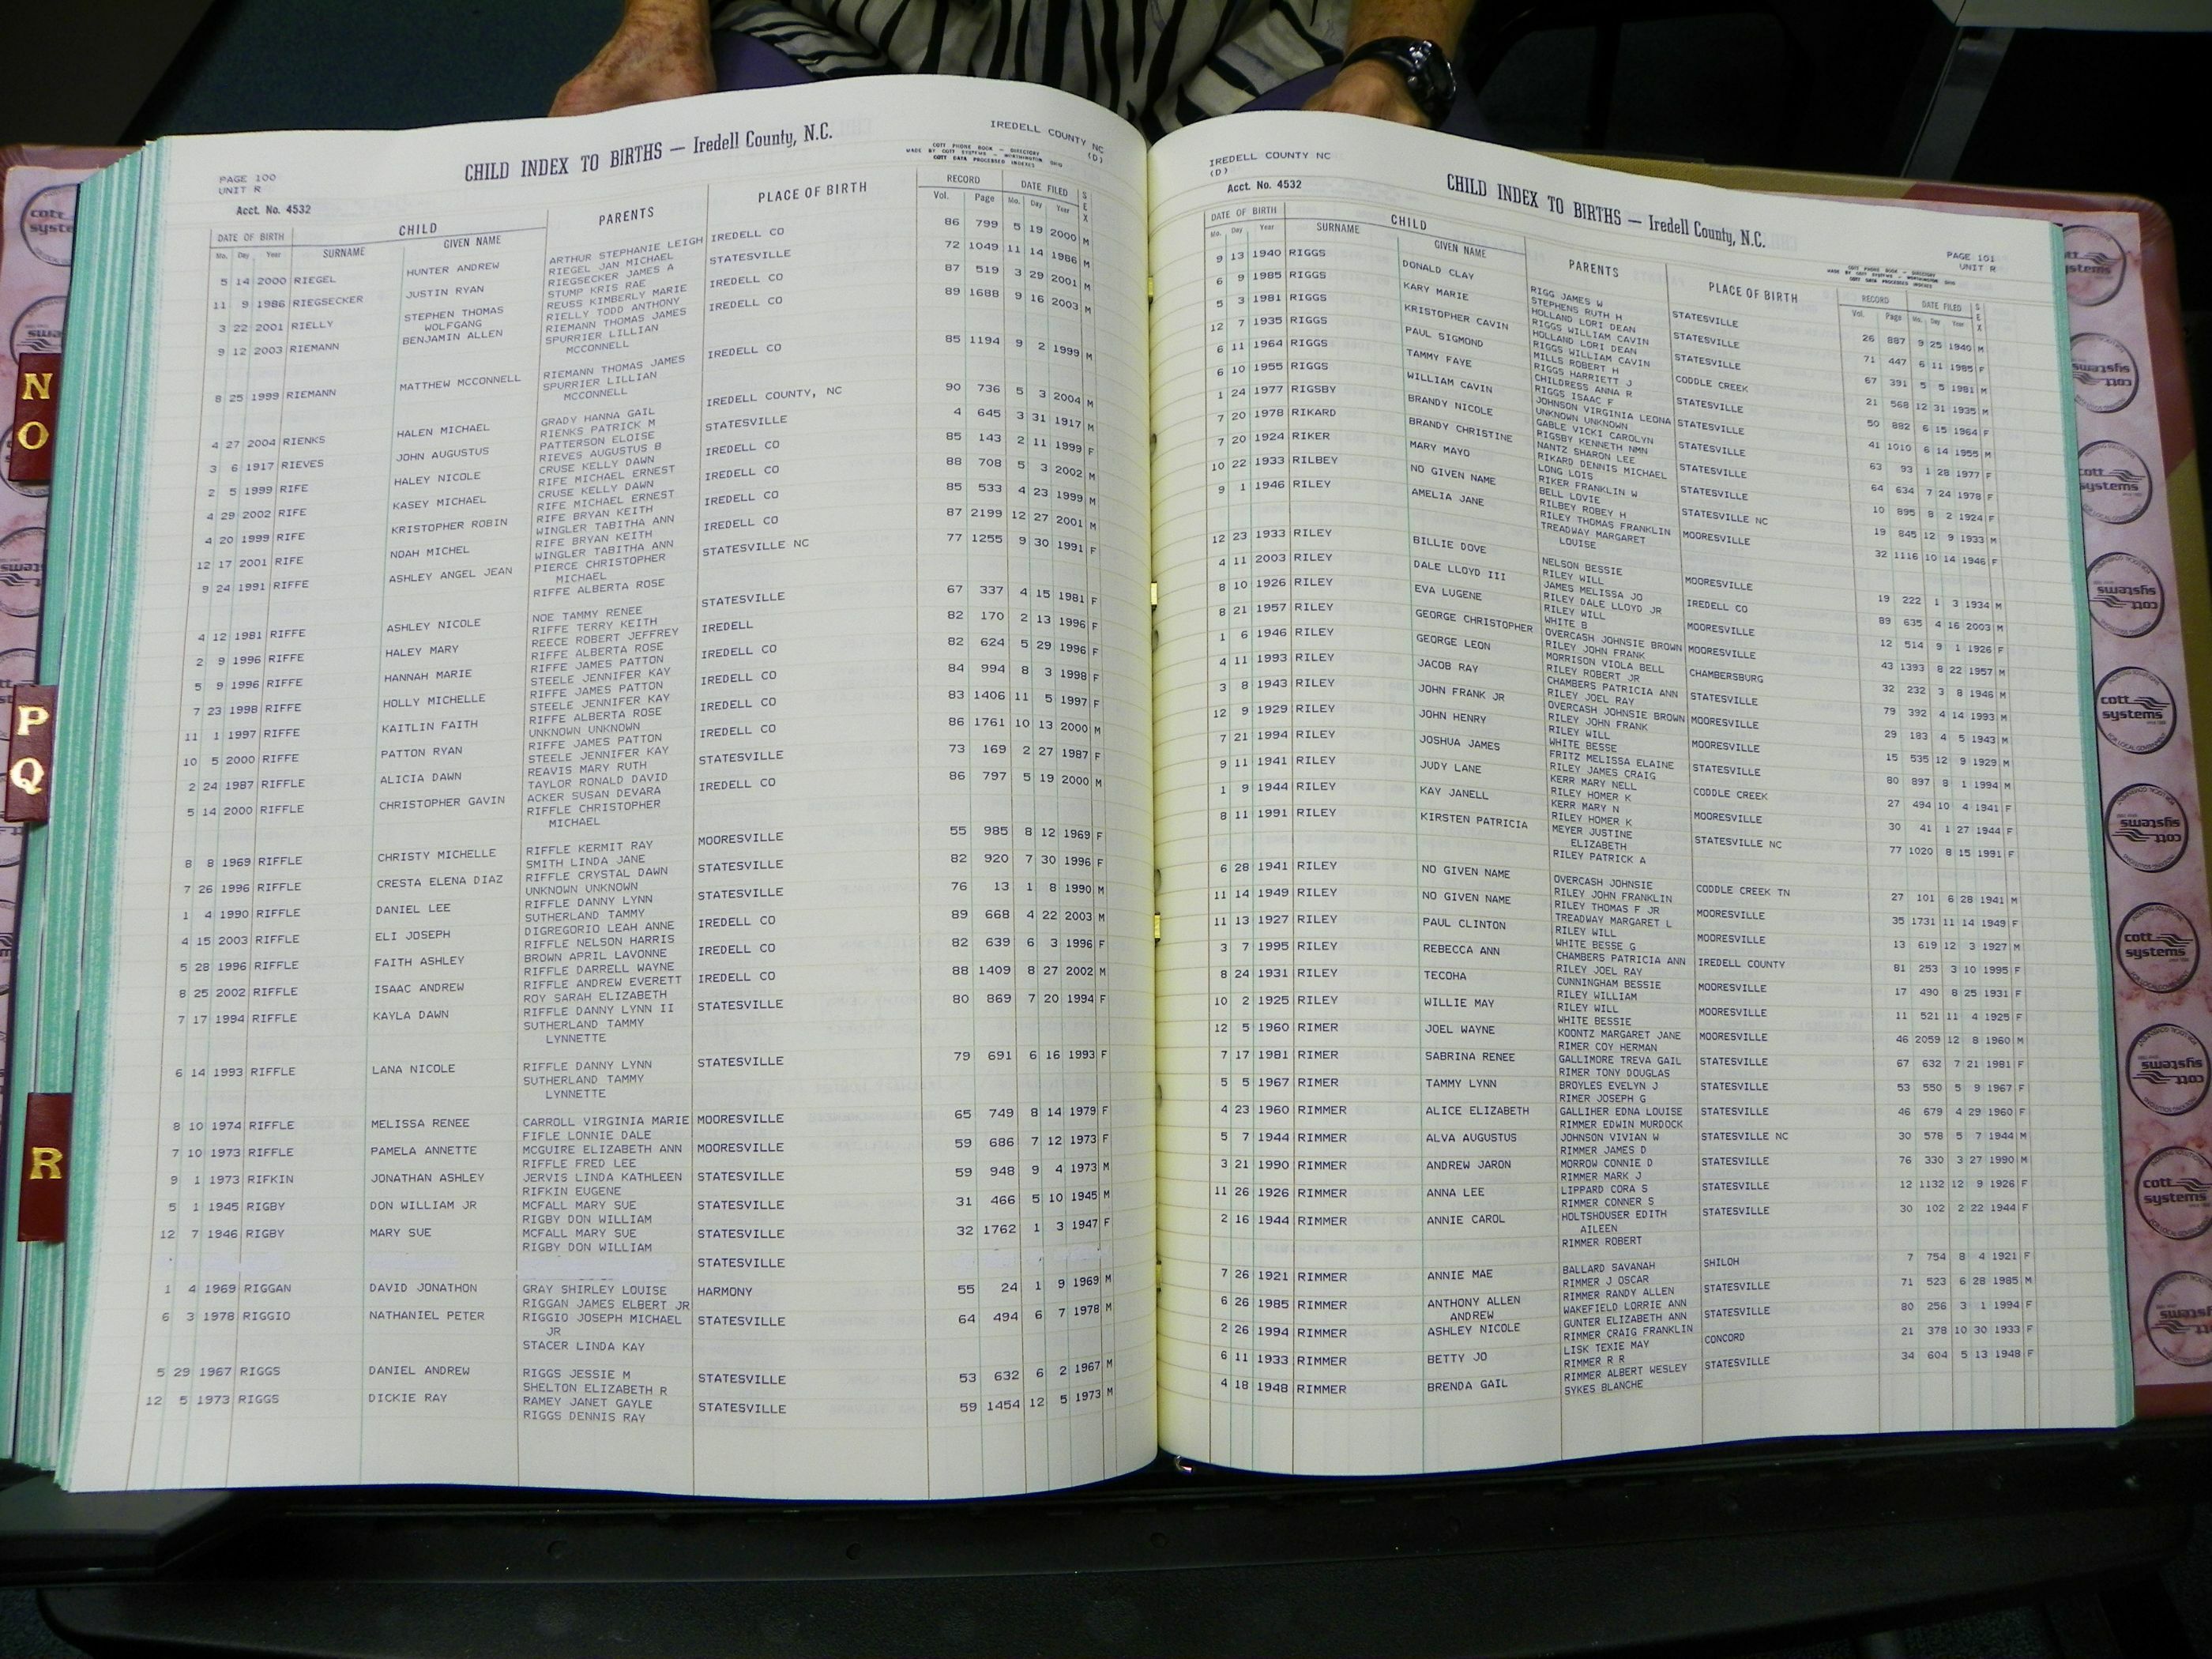 PAGE 100
UNIT R
CHILD INDEX TO BIRTHS — Iredell County, N.C.
IREDELL COUNTY NC
(D)
COTT PHONE BOOK — DIRECTORY
MADE BY COTT SYSTEMS — WORTHINGTON OHIO
COTT DATA PROCESSED INDEXES
Acct. No. 4532
DATE OF BIRTH CHILD PARENTS PLACE OF BIRTH RECORD DATE FILED SEX
Mo. Day Year SURNAME GIVEN NAME Vol. Page Mo. Day Year
5 14 2000 RIEGEL HUNTER ANDREW ARTHUR STEPHANIE LEIGH IREDELL CO 86 799 5 19 2000 M
RIEGEL JAN MICHAEL
11 9 1986 RIEGSECKER JUSTIN RYAN RIEGSECKER JAMES A STATESVILLE 72 1049 11 14 1986 M
STUMP KRIS RAE
3 22 2001 RIELLY STEPHEN THOMAS REUSS KIMBERLY MARIE IREDELL CO 87 519 3 29 2001 M
WOLFGANG RIELLY TODD ANTHONY
9 12 2003 RIEMANN BENJAMIN ALLEN RIEMANN THOMAS JAMES IREDELL CO 89 1688 9 16 2003 M
SPURRIER LILLIAN
MCCONNELL
8 25 1999 RIEMANN MATTHEW MCCONNELL RIEMANN THOMAS JAMES IREDELL CO 85 1194 9 2 1999 M
SPURRIER LILLIAN
MCCONNELL
4 27 2004 RIENKS HALEN MICHAEL GRADY HANNA GAIL IREDELL COUNTY, NC 90 736 5 3 2004 M
RIENKS PATRICK M
3 6 1917 RIEVES JOHN AUGUSTUS PATTERSON ELOISE STATESVILLE 4 645 3 31 1917 M
RIEVES AUGUSTUS B
2 5 1999 RIFE HALEY NICOLE CRUSE KELLY DAWN IREDELL CO 85 143 2 11 1999 F
RIFE MICHAEL ERNEST
4 29 2002 RIFE KASEY MICHAEL CRUSE KELLY DAWN IREDELL CO 88 708 5 3 2002 M
RIFE MICHAEL ERNEST
4 20 1999 RIFE KRISTOPHER ROBIN RIFE BRYAN KEITH IREDELL CO 85 533 4 23 1999 M
WINGLER TABITHA ANN
12 17 2001 RIFE NOAH MICHEL RIFE BRYAN KEITH IREDELL CO 87 2199 12 27 2001 M
WINGLER TABITHA ANN
9 24 1991 RIFFE ASHLEY ANGEL JEAN PIERCE CHRISTOPHER STATESVILLE NC 77 1255 9 30 1991 F
MICHAEL
RIFFE ALBERTA ROSE
4 12 1981 RIFFE ASHLEY NICOLE NOE TAMMY RENEE STATESVILLE 67 337 4 15 1981 F
RIFFE TERRY KEITH
2 9 1996 RIFFE HALEY MARY REECE ROBERT JEFFREY IREDELL 82 170 2 13 1996 F
RIFFE ALBERTA ROSE
5 9 1996 RIFFE HANNAH MARIE RIFFE JAMES PATTON IREDELL CO 82 624 5 29 1996 F
STEELE JENNIFER KAY
7 23 1998 RIFFE HOLLY MICHELLE RIFFE JAMES PATTON IREDELL CO 84 994 8 3 1998 F
STEELE JENNIFER KAY
11 1 1997 RIFFE KAITLIN FAITH RIFFE ALBERTA ROSE IREDELL CO 83 1406 11 5 1997 F
UNKNOWN UNKNOWN
10 5 2000 RIFFE PATTON RYAN RIFFE JAMES PATTON IREDELL CO 86 1761 10 13 2000 M
STEELE JENNIFER KAY
2 24 1987 RIFFLE ALICIA DAWN REAVIS MARY RUTH STATESVILLE 73 169 2 27 1987 F
TAYLOR RONALD DAVID
5 14 2000 RIFFLE CHRISTOPHER GAVIN ACKER SUSAN DEVARA IREDELL CO 86 797 5 19 2000 M
RIFFLE CHRISTOPHER
MICHAEL
8 8 1969 RIFFLE CHRISTY MICHELLE RIFFLE KERMIT RAY MOORESVILLE 55 985 8 12 1969 F
SMITH LINDA JANE
7 26 1996 RIFFLE CRESTA ELENA DIAZ RIFFLE CRYSTAL DAWN STATESVILLE 82 920 7 30 1996 F
UNKNOWN UNKNOWN
1 4 1990 RIFFLE DANIEL LEE RIFFLE DANNY LYNN STATESVILLE 76 13 1 8 1990 M
SUTHERLAND TAMMY
4 15 2003 RIFFLE ELI JOSEPH DIGREGORIO LEAH ANNE IREDELL CO 89 668 4 22 2003 M
RIFFLE NELSON HARRIS
5 28 1996 RIFFLE FAITH ASHLEY BROWN APRIL LAVONNE IREDELL CO 82 639 6 3 1996 F
RIFFLE DARRELL WAYNE
8 25 2002 RIFFLE ISAAC ANDREW RIFFLE ANDREW EVERETT IREDELL CO 88 1409 8 27 2002 M
ROY SARAH ELIZABETH
7 17 1994 RIFFLE KAYLA DAWN RIFFLE DANNY LYNN II STATESVILLE 80 869 7 20 1994 F
SUTHERLAND TAMMY
LYNNETTE
6 14 1993 RIFFLE LANA NICOLE RIFFLE DANNY LYNN STATESVILLE 79 691 6 16 1993 F
SUTHERLAND TAMMY
LYNNETTE
8 10 1974 RIFFLE MELISSA RENEE CARROLL VIRGINIA MARIE MOORESVILLE 65 749 8 14 1979 F
FIFLE LONNIE DALE
7 10 1973 RIFFLE PAMELA ANNETTE MCGUIRE ELIZABETH ANN MOORESVILLE 59 686 7 12 1973 F
RIFFLE FRED LEE
9 1 1973 RIFKIN JONATHAN ASHLEY JERVIS LINDA KATHLEEN STATESVILLE 59 948 9 4 1973 M
RIFKIN EUGENE
5 1 1945 RIGBY DON WILLIAM JR MCFALL MARY SUE STATESVILLE 31 466 5 10 1945 M
RIGBY DON WILLIAM
12 7 1946 RIGBY MARY SUE MCFALL MARY SUE STATESVILLE 32 1762 1 3 1947 F
RIGBY DON WILLIAM
STATESVILLE
1 4 1969 RIGGAN DAVID JONATHON GRAY SHIRLEY LOUISE HARMONY 55 24 1 9 1969 M
RIGGAN JAMES ELBERT JR
6 3 1978 RIGGIO NATHANIEL PETER RIGGIO JOSEPH MICHAEL STATESVILLE 64 494 6 7 1978 M
JR
STACER LINDA KAY
5 29 1967 RIGGS DANIEL ANDREW RIGGS JESSIE M STATESVILLE 53 632 6 2 1967 M
SHELTON ELIZABETH R
12 5 1973 RIGGS DICKIE RAY RAMEY JANET GAYLE STATESVILLE 59 1454 12 5 1973 M
RIGGS DENNIS RAY
IREDELL COUNTY NC
(D)
Acct. No. 4532
CHILD INDEX TO BIRTHS — Iredell County, N.C.
PAGE 101
UNIT R
COTT PHONE BOOK — DIRECTORY
MADE BY COTT SYSTEMS — WORTHINGTON OHIO
COTT DATA PROCESSED INDEXES
DATE OF BIRTH CHILD PARENTS PLACE OF BIRTH RECORD DATE FILED SEX
Mo. Day Year SURNAME GIVEN NAME Vol. Page Mo. Day Year
9 13 1940 RIGGS DONALD CLAY RIGG JAMES W STATESVILLE 26 887 9 25 1940 M
STEPHENS RUTH H
6 9 1985 RIGGS KARY MARIE HOLLAND LORI DEAN STATESVILLE 71 447 6 11 1985 F
RIGGS WILLIAM CAVIN
5 3 1981 RIGGS KRISTOPHER CAVIN HOLLAND LORI DEAN STATESVILLE 67 391 5 5 1981 M
RIGGS WILLIAM CAVIN
12 7 1935 RIGGS PAUL SIGMOND MILLS ROBERT H CODDLE CREEK 21 568 12 31 1935 M
RIGGS HARRIETT J
6 11 1964 RIGGS TAMMY FAYE CHILDRESS ANNA R STATESVILLE 50 882 6 15 1964 F
RIGGS ISAAC F
6 10 1955 RIGGS WILLIAM CAVIN JOHNSON VIRGINIA LEONA STATESVILLE 41 1010 6 14 1955 M
UNKNOWN UNKNOWN
1 24 1977 RIGSBY BRANDY NICOLE GABLE VICKI CAROLYN STATESVILLE 63 93 1 28 1977 F
RIGSBY KENNETH NMN
7 20 1978 RIKARD BRANDY CHRISTINE NANTZ SHARON LEE STATESVILLE 64 634 7 24 1978 F
RIKARD DENNIS MICHAEL
7 20 1924 RIKER MARY MAYO LONG LOIS STATESVILLE 10 895 8 2 1924 F
RIKER FRANKLIN W
10 22 1933 RILBEY NO GIVEN NAME BELL LOVIE STATESVILLE NC 19 845 12 9 1933 M
RILBEY ROBEY H
9 1 1946 RILEY AMELIA JANE RILEY THOMAS FRANKLIN MOORESVILLE 32 1116 10 14 1946 F
TREADWAY MARGARET
LOUISE
12 23 1933 RILEY BILLIE DOVE NELSON BESSIE MOORESVILLE 19 222 1 3 1934 M
RILEY WILL
4 11 2003 RILEY DALE LLOYD III JAMES MELISSA JO IREDELL CO 89 635 4 16 2003 M
RILEY DALE LLOYD JR
8 10 1926 RILEY EVA LUGENE RILEY WILL MOORESVILLE 12 514 9 1 1926 F
WHITE B
8 21 1957 RILEY GEORGE CHRISTOPHER OVERCASH JOHNSIE BROWN MOORESVILLE 43 1393 8 22 1957 M
RILEY JOHN FRANK
1 6 1946 RILEY GEORGE LEON MORRISON VIOLA BELL CHAMBERSBURG 32 232 3 8 1946 M
RILEY ROBERT JR
4 11 1993 RILEY JACOB RAY CHAMBERS PATRICIA ANN STATESVILLE 79 392 4 14 1993 M
RILEY JOEL RAY
3 8 1943 RILEY JOHN FRANK JR OVERCASH JOHNSIE BROWN MOORESVILLE 29 183 4 5 1943 M
RILEY JOHN FRANK
12 9 1929 RILEY JOHN HENRY RILEY WILL MOORESVILLE 15 535 12 9 1929 M
WHITE BESSE
7 21 1994 RILEY JOSHUA JAMES FRITZ MELISSA ELAINE STATESVILLE 80 897 8 1 1994 M
RILEY JAMES CRAIG
9 11 1941 RILEY JUDY LANE KERR MARY NELL CODDLE CREEK 27 494 10 4 1941 F
RILEY HOMER K
1 9 1944 RILEY KAY JANELL KERR MARY N MOORESVILLE 30 41 1 27 1944 F
RILEY HOMER K
8 11 1991 RILEY KIRSTEN PATRICIA MEYER JUSTINE STATESVILLE NC 77 1020 8 15 1991 F
ELIZABETH
RILEY PATRICK A
6 28 1941 RILEY NO GIVEN NAME OVERCASH JOHNSIE CODDLE CREEK TN 27 101 6 28 1941 M
RILEY JOHN FRANKLIN
11 14 1949 RILEY NO GIVEN NAME RILEY THOMAS F JR MOORESVILLE 35 1731 11 14 1949 F
TREADWAY MARGARET L
11 13 1927 RILEY PAUL CLINTON RILEY WILL MOORESVILLE 13 619 12 3 1927 M
WHITE BESSE G
3 7 1995 RILEY REBECCA ANN CHAMBERS PATRICIA ANN IREDELL COUNTY 81 253 3 10 1995 F
RILEY JOEL RAY
8 24 1931 RILEY TECOHA CUNNINGHAM BESSIE MOORESVILLE 17 490 8 25 1931 F
RILEY WILLIAM
10 2 1925 RILEY WILLIE MAY RILEY WILL MOORESVILLE 11 521 11 4 1925 F
WHITE BESSIE
12 5 1960 RIMER JOEL WAYNE KOONTZ MARGARET JANE MOORESVILLE 46 2059 12 8 1960 M
RIMER COY HERMAN
7 17 1981 RIMER SABRINA RENEE GALLIMORE TREVA GAIL STATESVILLE 67 632 7 21 1981 F
RIMER TONY DOUGLAS
5 5 1967 RIMER TAMMY LYNN BROYLES EVELYN J STATESVILLE 53 550 5 9 1967 F
RIMER JOSEPH G
4 23 1960 RIMMER ALICE ELIZABETH GALLIHER EDNA LOUISE STATESVILLE 46 679 4 29 1960 F
RIMMER EDWIN MURDOCK
5 7 1944 RIMMER ALVA AUGUSTUS JOHNSON VIVIAN W STATESVILLE NC 30 578 5 7 1944 M
RIMMER JAMES D
3 21 1990 RIMMER ANDREW JARON MORROW CONNIE D STATESVILLE 76 330 3 27 1990 M
RIMMER MARK J
11 26 1926 RIMMER ANNA LEE LIPPARD CORA S STATESVILLE 12 1132 12 9 1926 F
RIMMER CONNER S
2 16 1944 RIMMER ANNIE CAROL HOLTSHOUSER EDITH STATESVILLE 30 102 2 22 1944 F
AILEEN
RIMMER ROBERT
7 26 1921 RIMMER ANNIE MAE BALLARD SAVANAH SHILOH 7 754 8 4 1921 F
RIMMER J OSCAR
6 26 1985 RIMMER ANTHONY ALLEN RIMMER RANDY ALLEN STATESVILLE 71 523 6 28 1985 M
ANDREW WAKEFIELD LORRIE ANN
2 26 1994 RIMMER ASHLEY NICOLE GUNTER ELIZABETH ANN STATESVILLE 80 256 3 1 1994 F
RIMMER CRAIG FRANKLIN
6 11 1933 RIMMER BETTY JO LISK TEXIE MAY CONCORD 21 378 10 30 1933 F
RIMMER R R
4 18 1948 RIMMER BRENDA GAIL RIMMER ALBERT WESLEY STATESVILLE 34 604 5 13 1948 F
SYKES BLANCHE
N
O
P
Q
R
cott
systems